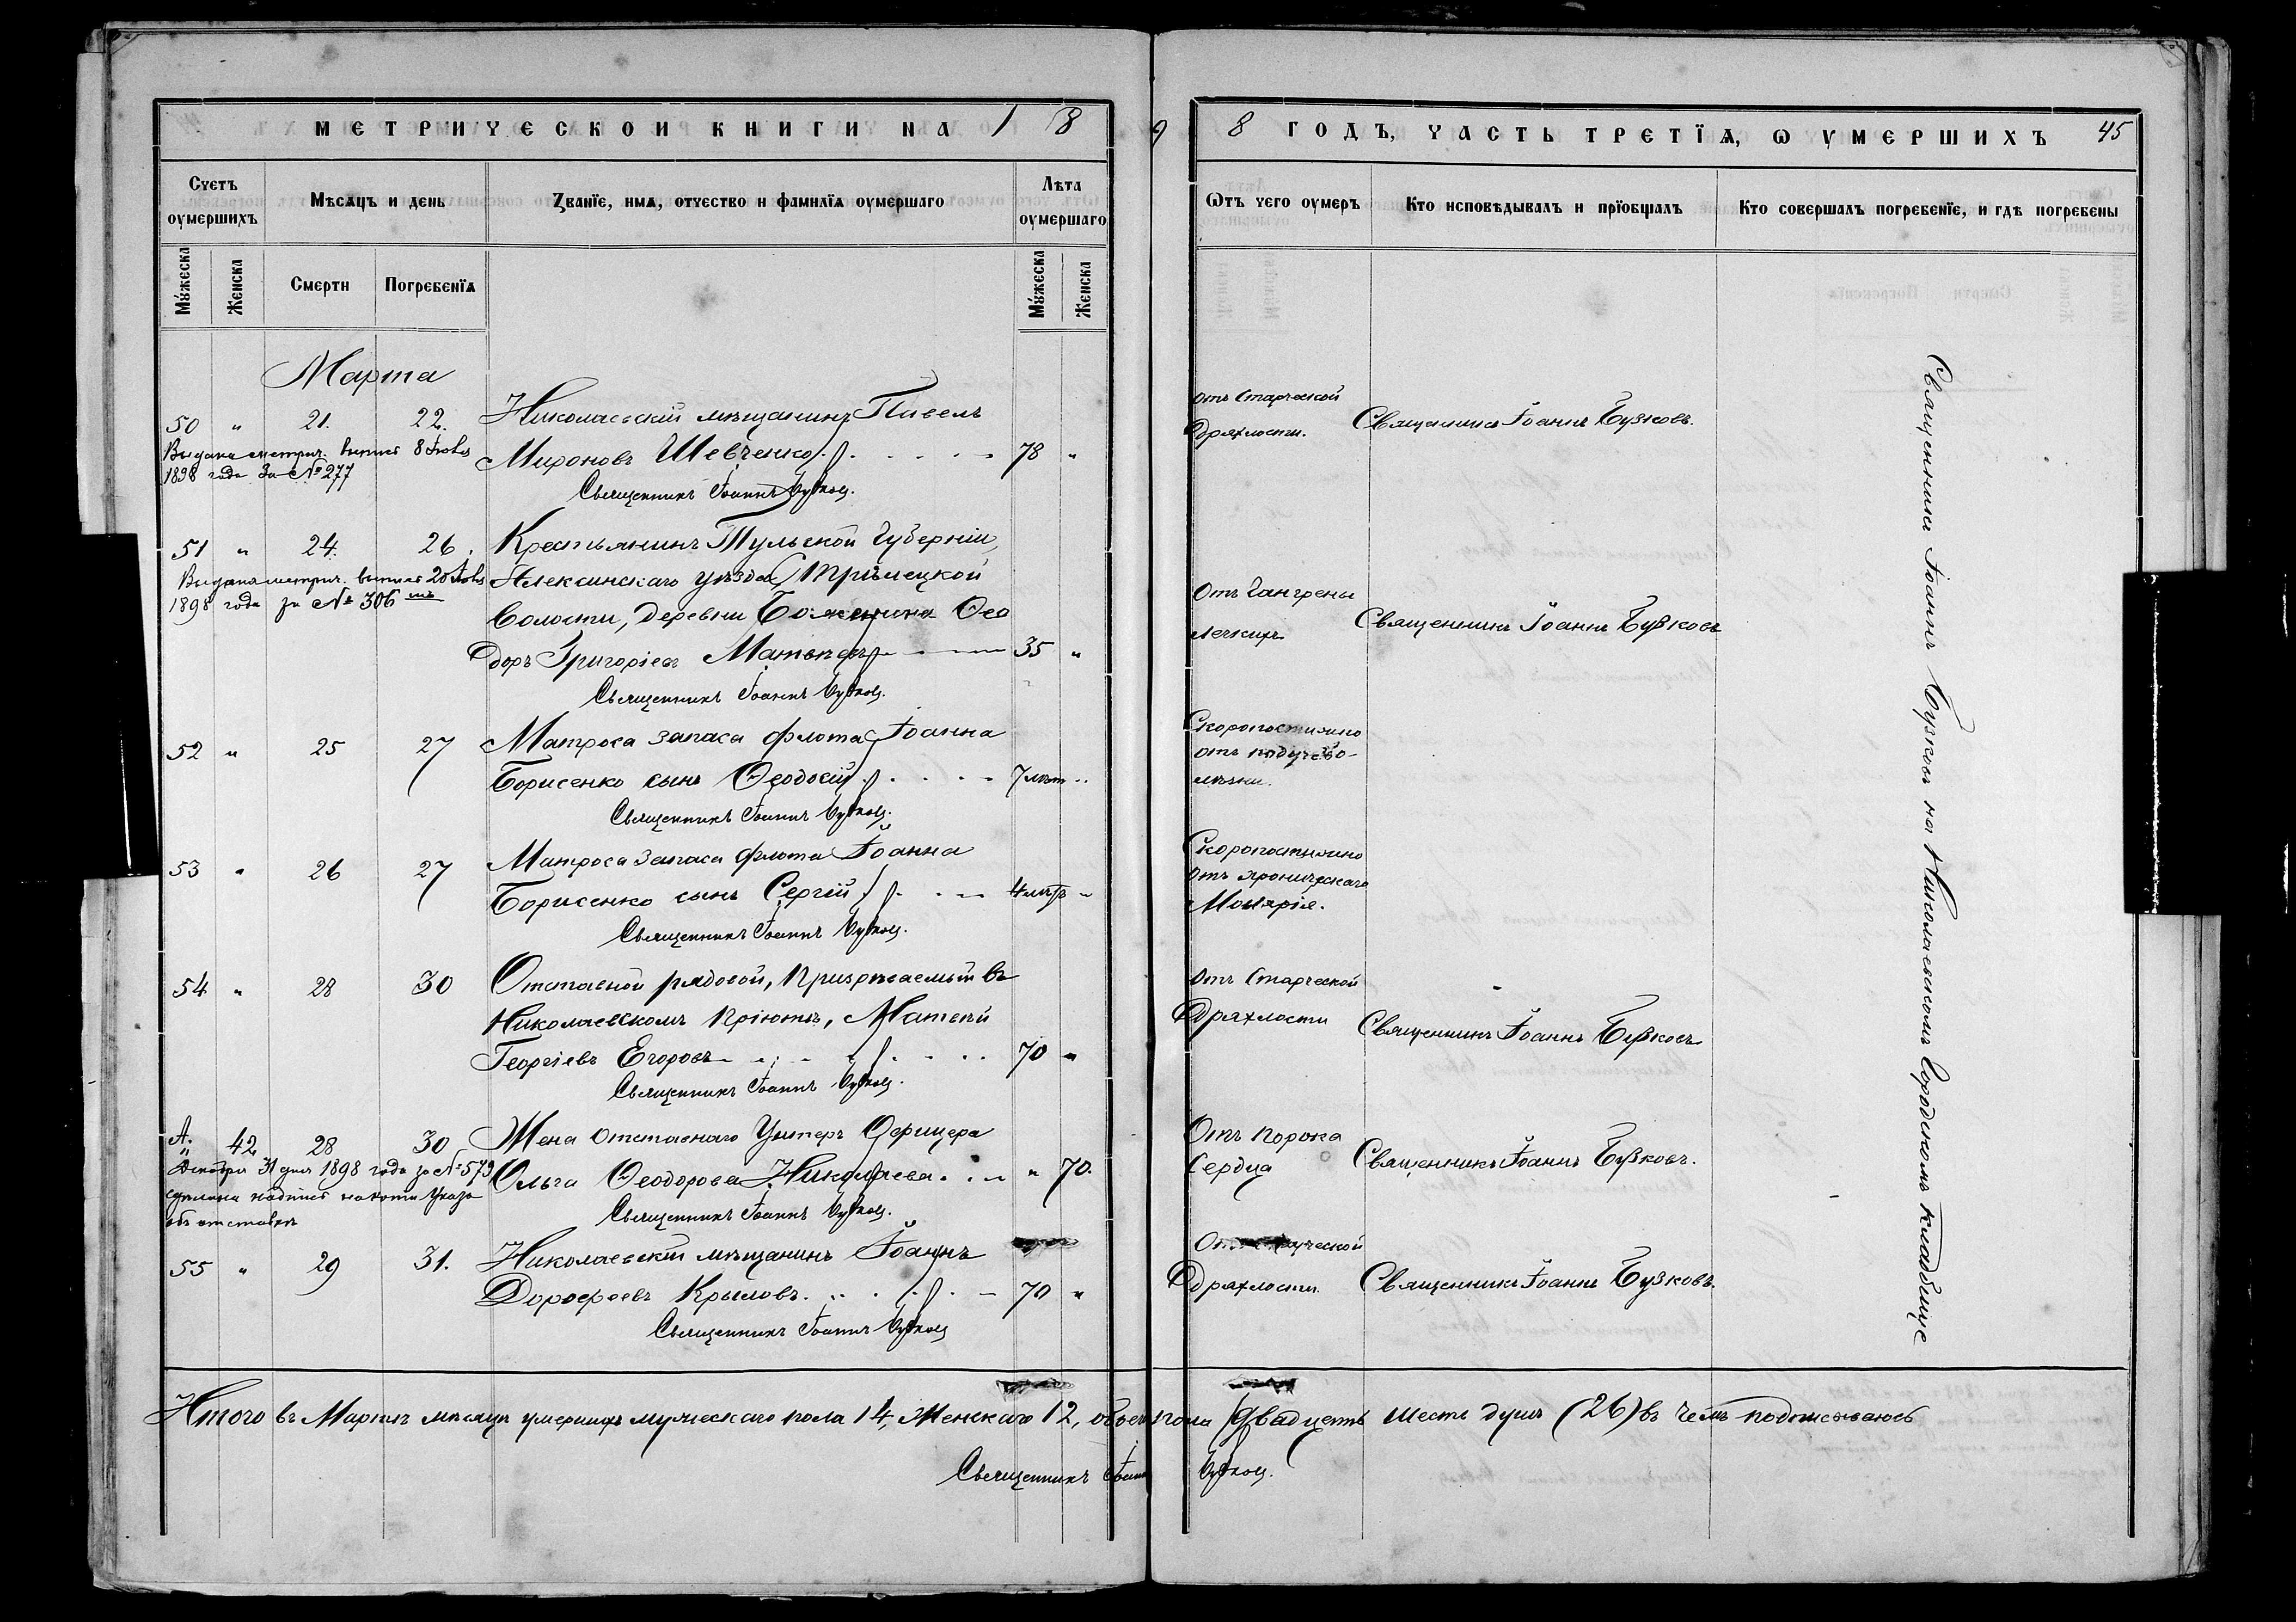 МЕТРИЧЕСКОЙ КНИГИ НА 1 8
9 8 ГОДЪ, ЧАСТЬ ТРЕТІѦ, Ѡ УМЕРШИХЪ 45
Счетъ оумершихъ
Мѣсѧцъ и день
Званїе, имѧ, отчество и фамилїѧ оумершаго
Лѣта оумершаго
Ѿтъ чего оумеръ
Кто исповѣдывалъ и прїобщалъ
Кто совершалъ погребенїе, и гдѣ погребены
Мꙋжеска
Женска
Смерти
Погребенїѧ
Мꙋжеска
Женска
Марта
50 " 21. 22. Николаевскій мѣщанинъ Павелъ
Мироновъ Шевченко 78 "
Священникъ Іоаннъ Бузковъ.
Выдана метрич. выпись 8
1898 года за № 277
Отъ Старческой
дряхлости.
Священникъ Іоаннъ Бузковъ.
51 " 24. 26. Крестьянинъ Тульской Губерніи,
Алексинскаго уѣзда Стрѣлецкой
Волости, деревни Ѳео
доръ Григоріевъ 35 "
Священникъ Іоаннъ Бузковъ.
Выдана метрич. выпись 20
1898 года за № 306
Отъ Гангрены
легкихъ
Священникъ Іоаннъ Бузковъ
52 " 25 27 Матроса запаса флота Іоанна
Борисенко сынъ Ѳеодосій 7 лѣт
Священникъ Іоаннъ Бузковъ.
Скоропостижно
отъ падучей бо-
лѣзни.
53 " 26 27 Матроса запаса флота Іоанна
Борисенко сынъ Сергій 4 лѣтъ
Священникъ Іоаннъ Бузковъ.
Скоропостижно
отъ хроническаго
54 " 28 30 Отставной рядовой, призрѣваемый въ
Николаевскомъ пріютѣ, Матвѣй
Георгіевъ Егоровъ 70 "
Священникъ Іоаннъ Бузковъ.
Отъ Старческой
дряхлости
Священникъ Іоаннъ Бузковъ
" 42 28 30 Жена отставнаго Унтеръ Офицера
Ольга Ѳеодорова Николаева " 70.
Священникъ Іоаннъ Бузковъ.
Декабря 31 дня 1898 года за № 573
сдѣлана надпись на копіи Указа
объ отставкѣ
Отъ порока
Сердца
Священникъ Іоаннъ Бузковъ.
55 " 29 31. Николаевскій мѣщанинъ Іоаннъ
Дороѳеевъ Крыловъ 70 "
Священникъ Іоаннъ Бузковъ
Отъ Старческой
дряхлости
Священникъ Іоаннъ Бузковъ.
Священникъ Іоаннъ Бузковъ на Николаевскомъ Городскомъ кладбище
Итого въ Мартѣ мѣсяцѣ умершихъ мужескаго пола 14, Женскаго 12, обоего пола двадцать шесть душъ (26) въ чемъ подписываюсь
Священникъ Іоаннъ Бузковъ.